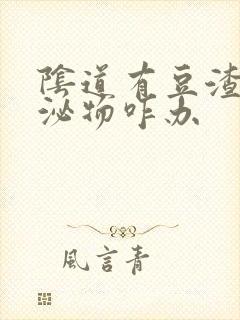 陰道有豆渣
泌物咋办
風言青